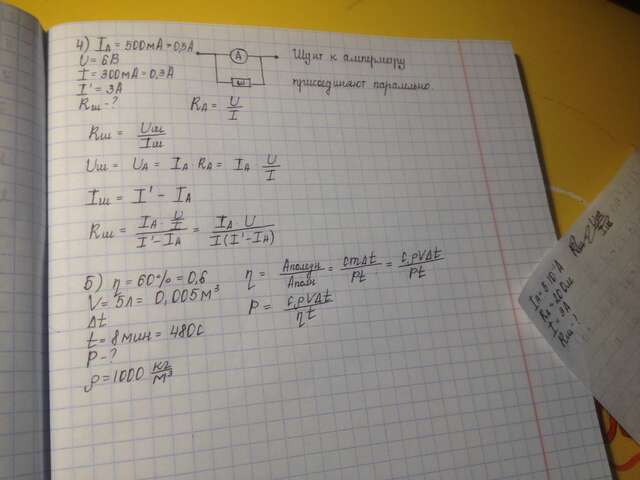 4) I_A = 500mA = 0,5A
U = 6В
I = 300mA = 0,3A
I' = 3A
Rш - ?
A
ш
Шунт к амперметру
присоединяют паралельно
R_A = U/I
Rш = Uш/Iш
Uш = U_A = I_A R_A = I_A U/I
Iш = I' - I_A
Rш = (I_A U/I)/(I' - I_A) = I_A U/(I(I' - I_A))
5) η = 60% = 0,6
Δt
V = 5л = 0,005м³
t = 8мин = 480с
P - ?
ρ = 1000 кг/м³
η = Aполезн/Aполн = cmΔt/Pt = cρVΔt/Pt
P = cρVΔt/ηt
R_A = 20Ом
I = 3A
Rш - ?